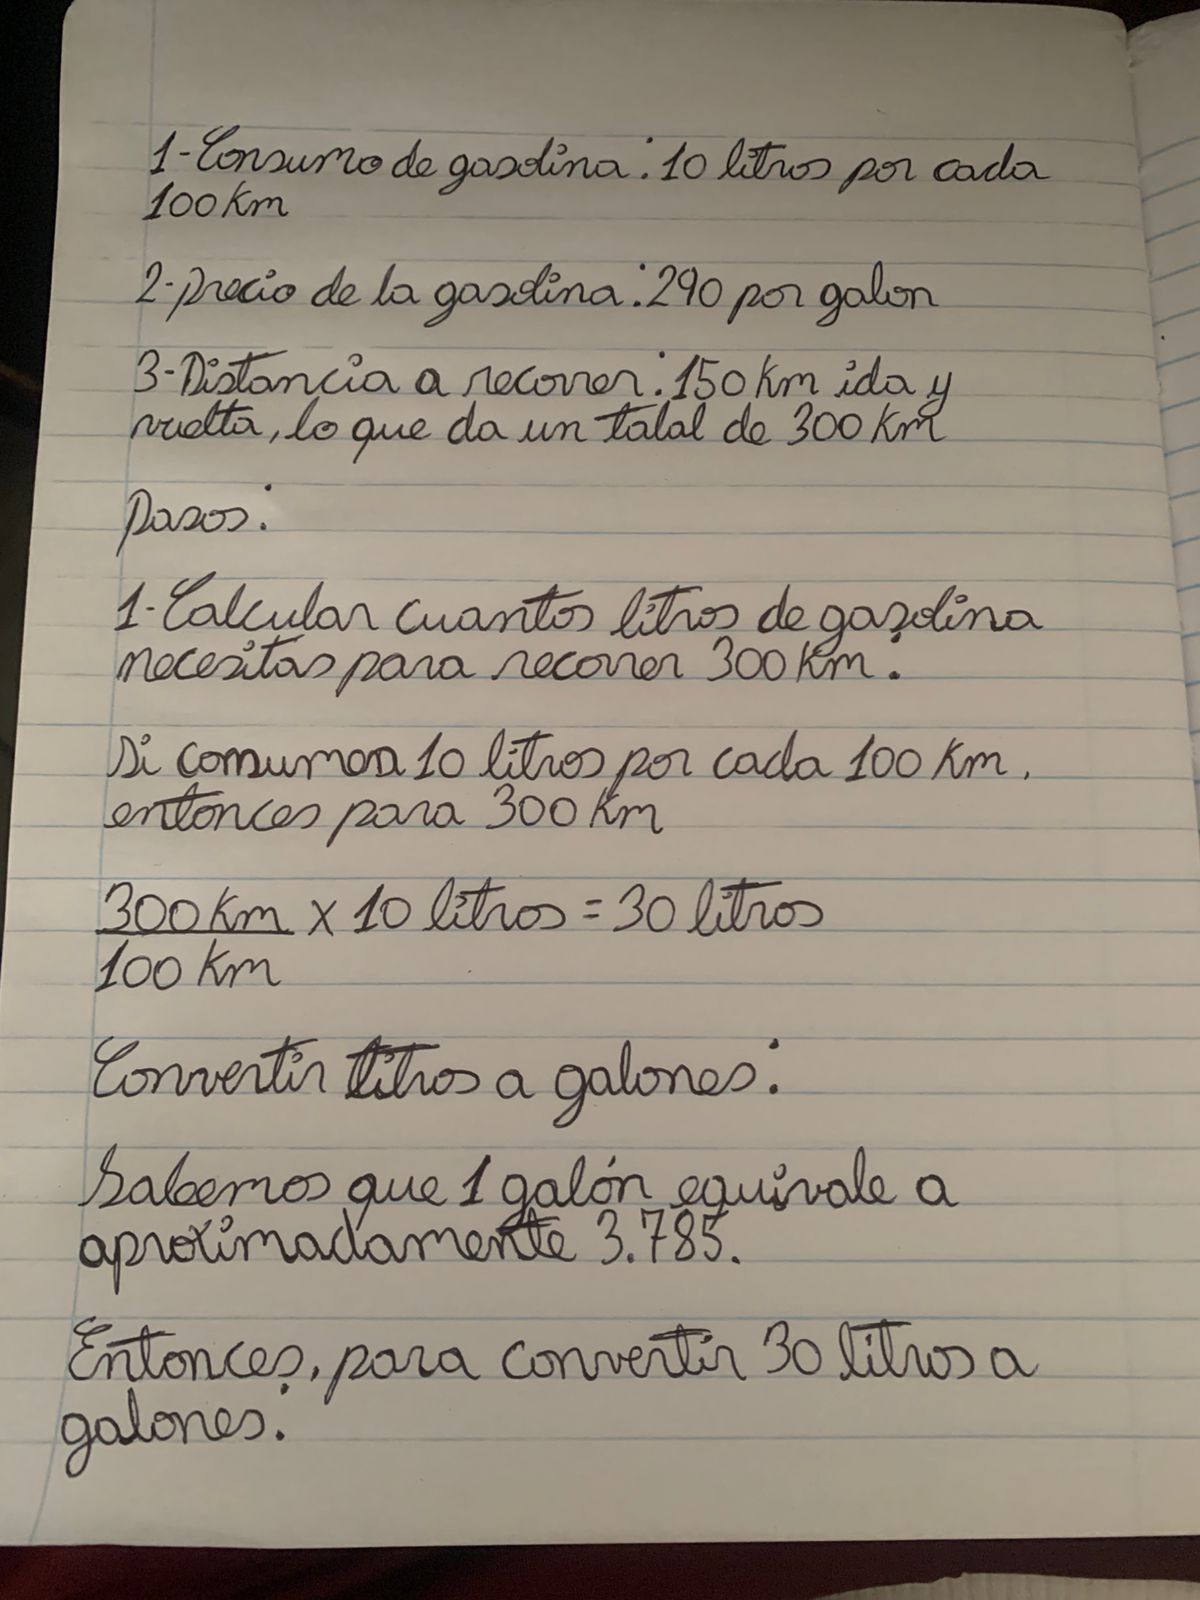 1-Consumo de gasolina: 10 litros por cada
100 Km
2-precio de la gasolina: 290 por galon
3-Distancia a recorrer: 150 Km ida y
vuelta, lo que da un talal de 300 Km
Pasos:
1-Calcular cuantos litros de gasolina
necesitas para recorrer 300 Km:
Si consumen 10 litros por cada 100 Km,
entonces para 300 Km
300 Km x 10 litros = 30 litros
100 Km
Convertir litros a galones:
Sabemos que 1 galón equivale a
aproximadamente 3.785.
Entonces, para convertir 30 litros a
galones: